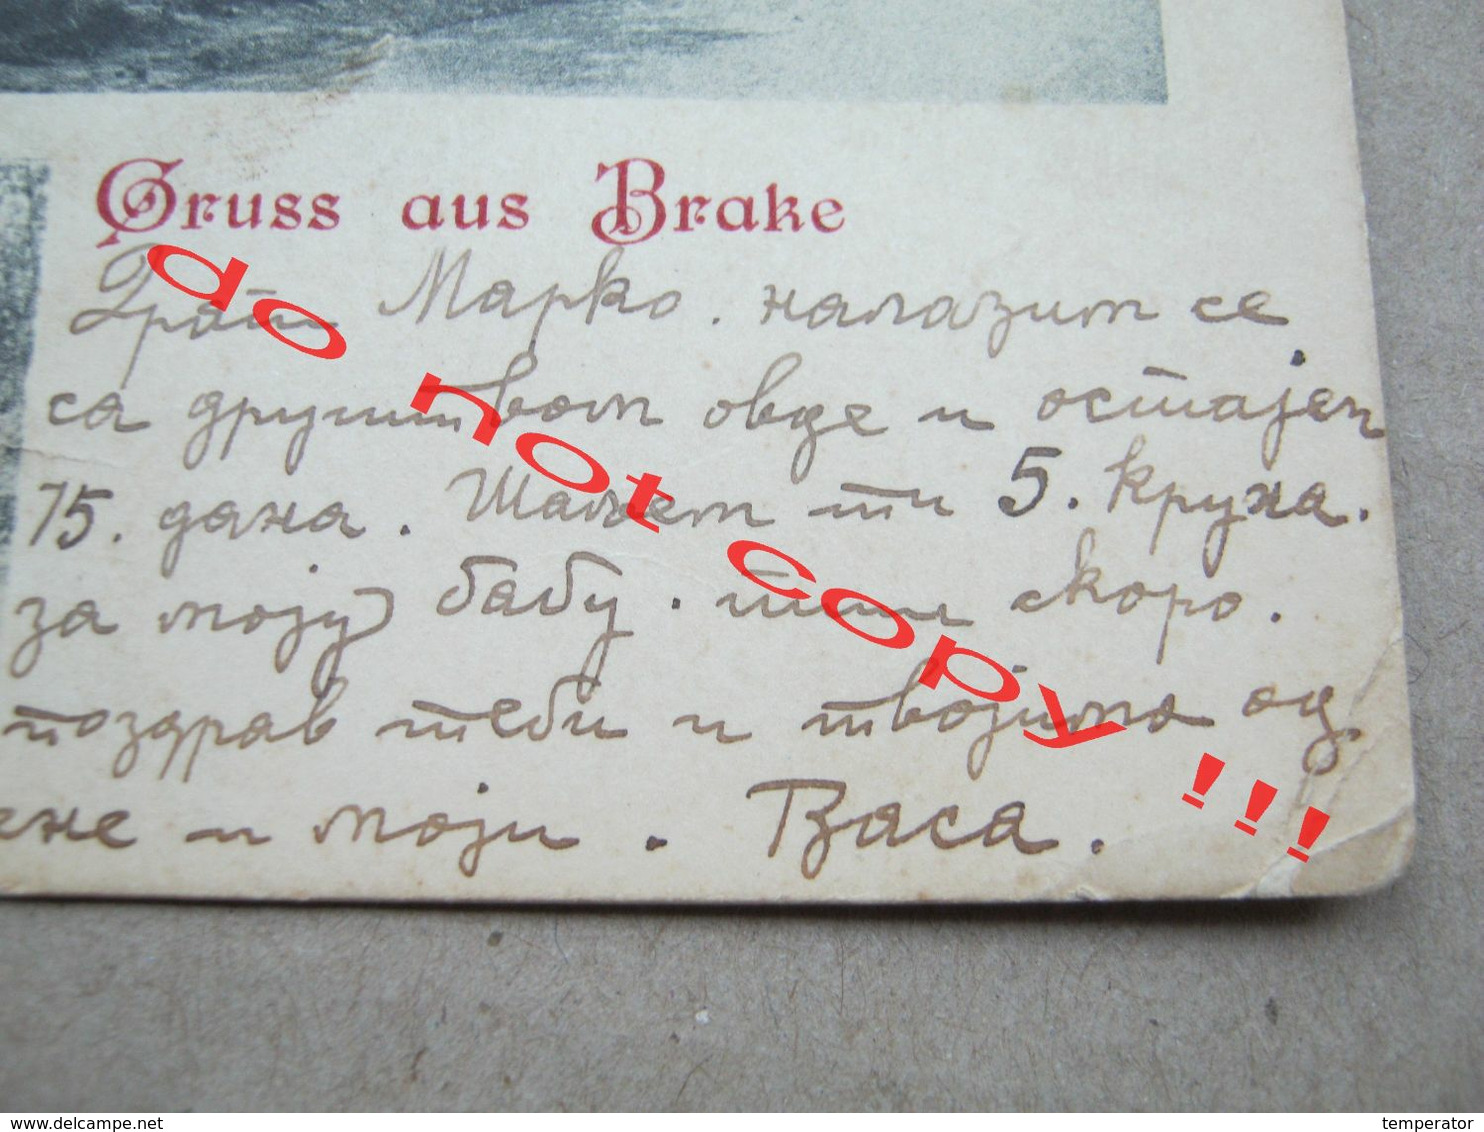 Gruss aus Brake
Драги Марко. налазим се
са друштвом овде и остајем
15. дана. Шаљем ти 5. круна.
за моју бабу. пиши скоро.
поздрав теби и твојима од
мене и моји. Васа.
do not copy !!!
delcampe.net
temperator